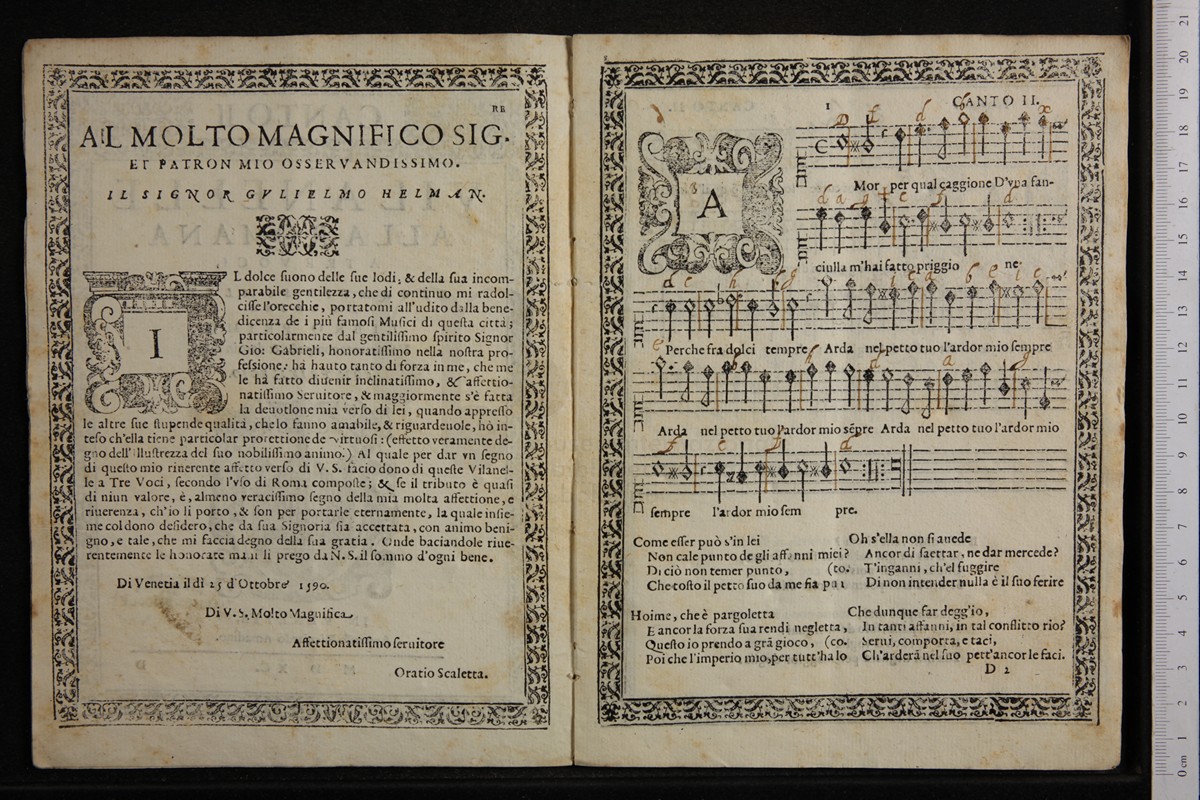 RE
AL MOLTO MAGNIFICO SIG.
ET PATRON MIO OSSERVANDISSIMO.
IL SIGNOR GVLIELMO HELMAN.
IL dolce suono delle sue lodi, & della sua incom-
parabile gentilezza, che di continuo mi radol-
cisse l'orecchie, portatomi all'udito dalla bene-
dicenza de i più famosi Musici di questa città;
particolarmente dal gentilissimo spirito Signor
Gio: Gabrieli, honoratissimo nella nostra pro-
fessione: hà hauto tanto di forza in me, che me
le hà fatto diuenir inclinatissimo, & affettio-
natissimo Seruitore, & maggiormente s'è fatta
la deuotione mia verso di lei, quando appresso
le altre sue stupende qualità, che lo fanno amabile, & riguardeuole, hò in-
teso ch'ella tiene particolar protettione de virtuosi: (effetto veramente de-
gno dell'Illustrezza del suo nobilissimo animo.) Al quale per dar vn segno
di questo mio riuerente affetto verso di V. S. facio dono di queste Vilanel-
le a Tre Voci, secondo l'vso di Roma composte; & se il tributo è quasi
di niun valore, è, almeno veracissimo segno della mia molta affettione, e
riuerenza, ch'io li porto, & son per portarle eternamente, la quale insie-
me col dono desidero, che da sua Signoria sia accettata, con animo beni-
gno, e tale, che mi faccia degno della sua gratia. Onde baciandole riue-
rentemente le honorate mani li prego da N. S. il sommo d'ogni bene.
Di Venetia il dì 25 d'Ottobre 1590.
Di V. S. Molto Magnifica
Affettionatissimo seruitore
Oratio Scaletta.
1 CANTO II.
AMor per qual caggione D'vna fan-
ciulla m'hai fatto priggio ne:
Perche fra dolci tempre Arda nel petto tuo l'ardor mio sempre
Arda nel petto tuo l'ardor mio sēpre Arda nel petto tuo l'ardor mio
sempre l'ardor mio sem pre.
Come esser può s'in lei
Non cale punto de gli affanni miei?
Di ciò non temer punto, (to.
Che tosto il petto suo da me fia pu
Oh s'ella non si auede
Ancor di saettar, ne dar mercede?
T'inganni, ch'el fuggire
Di non intender nulla è il suo ferire
Hoime, che è pargoletta
E ancor la forza sua rendi negletta,
Questo io prendo a grā gioco, (co.
Poi che l'imperio mio, per tutt'ha lo
Che dunque far degg'io,
In tanti affanni, in tal conflitto rio?
Serui, comporta, e taci,
Ch'arderà nel suo pett'ancor le faci.
D 2